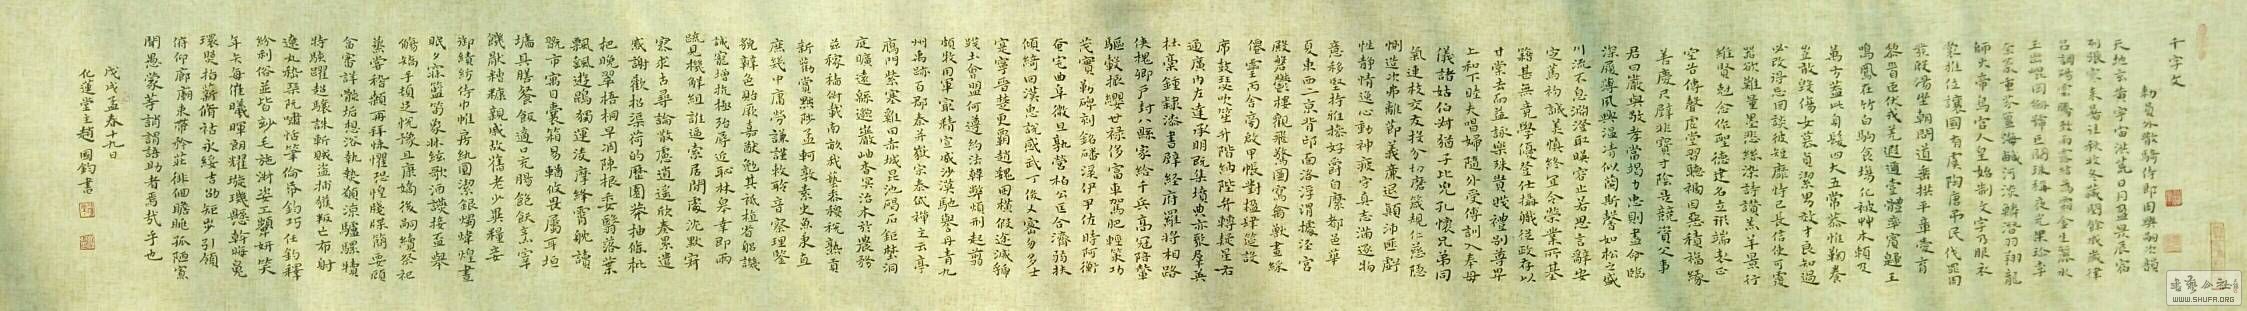 千字文
勅員外散騎侍郎周興嗣次韻
天地玄黃宇宙洪荒日月盈昃辰宿
列張寒來暑往秋收冬藏閏餘成歲律
呂調陽雲騰致雨露結為霜金生麗水
玉出崑岡劍號巨闕珠稱夜光果珍李
柰菜重芥薑海鹹河淡鱗潛羽翔龍
師火帝鳥官人皇始制文字乃服衣
裳推位讓國有虞陶唐弔民伐罪周
發殷湯坐朝問道垂拱平章愛育
黎首臣伏戎羌遐邇壹體率賓歸王
鳴鳳在竹白駒食場化被草木賴及
萬方蓋此身髮四大五常恭惟鞠養
豈敢毀傷女慕貞潔男效才良知過
必改得忘罔談彼短靡恃己長信使可覆
器欲難量墨悲絲染詩讚羔羊景行
維賢剋念作聖德建名立形端表正
空谷傳聲虛堂習聽禍因惡積福緣
善慶尺璧非寶寸陰是競資父事
君曰嚴與敬孝當竭力忠則盡命臨
深履薄夙興溫凊似蘭斯馨如松之盛
川流不息淵澄取映容止若思言辭安
定篤初誠美慎終宜令榮業所基
籍甚無竟學優登仕攝職從政存以
甘棠去而益詠樂殊貴賤禮別尊卑
上和下睦夫唱婦隨外受傅訓入奉母
儀諸姑伯叔猶子比兒孔懷兄弟同
氣連枝交友投分切磨箴規仁慈隱
惻造次弗離節義廉退顛沛匪虧
性靜情逸心動神疲守真志滿逐物
意移堅持雅操好爵自縻都邑華
夏東西二京背邙面洛浮渭據涇宮
殿盤鬱樓觀飛驚圖寫禽獸畫綵
僊靈丙舍傍啟甲帳對楹肆筵設
席鼓瑟吹笙升階納陛弁轉疑星右
通廣內左達承明既集墳典亦聚群英
杜稾鍾隸漆書壁經府羅將相路
俠槐卿戶封八縣家給千兵高冠陪輦
驅轂振纓世祿侈富車駕肥輕策功
茂實勒碑刻銘磻溪伊尹佐時阿衡
奄宅曲阜微旦孰營桓公匡合濟弱扶
傾綺回漢惠說感武丁俊乂密勿多士
寔寧晉楚更霸趙魏困橫假途滅虢
踐土會盟何遵約法韓弊煩刑起翦
頗牧用軍最精宣威沙漠馳譽丹青九
州禹跡百郡秦并嶽宗泰岱禪主云亭
雁門紫塞雞田赤城昆池碣石鉅埜洞
庭曠遠緜邈巖岫杳冥治本於農務
茲稼穡俶載南畝我藝黍稷稅熟貢
新勸賞黜陟孟軻敦素史魚秉直
庶幾中庸勞謙謹敕聆音察理鑒
貌辨色貽厥嘉猷勉其祗植省躬譏
誡寵增抗極殆辱近恥林皋幸即兩
疏見機解組誰逼索居閒處沈默寂
寥求古尋論散慮逍遙欣奏累遣
慼謝歡招渠荷的歷園莽抽條枇
杷晚翠梧桐早凋陳根委翳落葉
飄颻遊鵾獨運凌摩絳霄耽讀
翫市寓目囊箱易輶攸畏屬耳垣
墻具膳餐飯適口充腸飽飫烹宰
饑厭糟糠親戚故舊老少異糧妾
御績紡侍巾帷房紈扇圓潔銀燭煒煌晝
眠夕寐籃筍象床絃歌酒讌接盃舉
觴矯手頓足悅豫且康嫡後嗣續祭祀
蒸嘗稽顙再拜悚懼恐惶牋牒簡要顧
答審詳骸垢想浴執熱願涼驢騾犢
特駭躍超驤誅斬賊盜捕獲叛亡布射
遼丸嵇琴阮嘯恬筆倫紙鈞巧任釣釋
紛利俗並皆佳妙毛施淑姿工顰妍笑
年矢每催曦暉朗耀璇璣懸斡晦魄
環照指薪脩祜永綏吉劭矩步引領
俯仰廊廟束帶矜莊徘徊瞻眺孤陋寡
聞愚蒙等誚謂語助者焉哉乎也
戊戌孟春十九日
化蓮堂主趙國鈞書
WWW.SHUFA.ORG